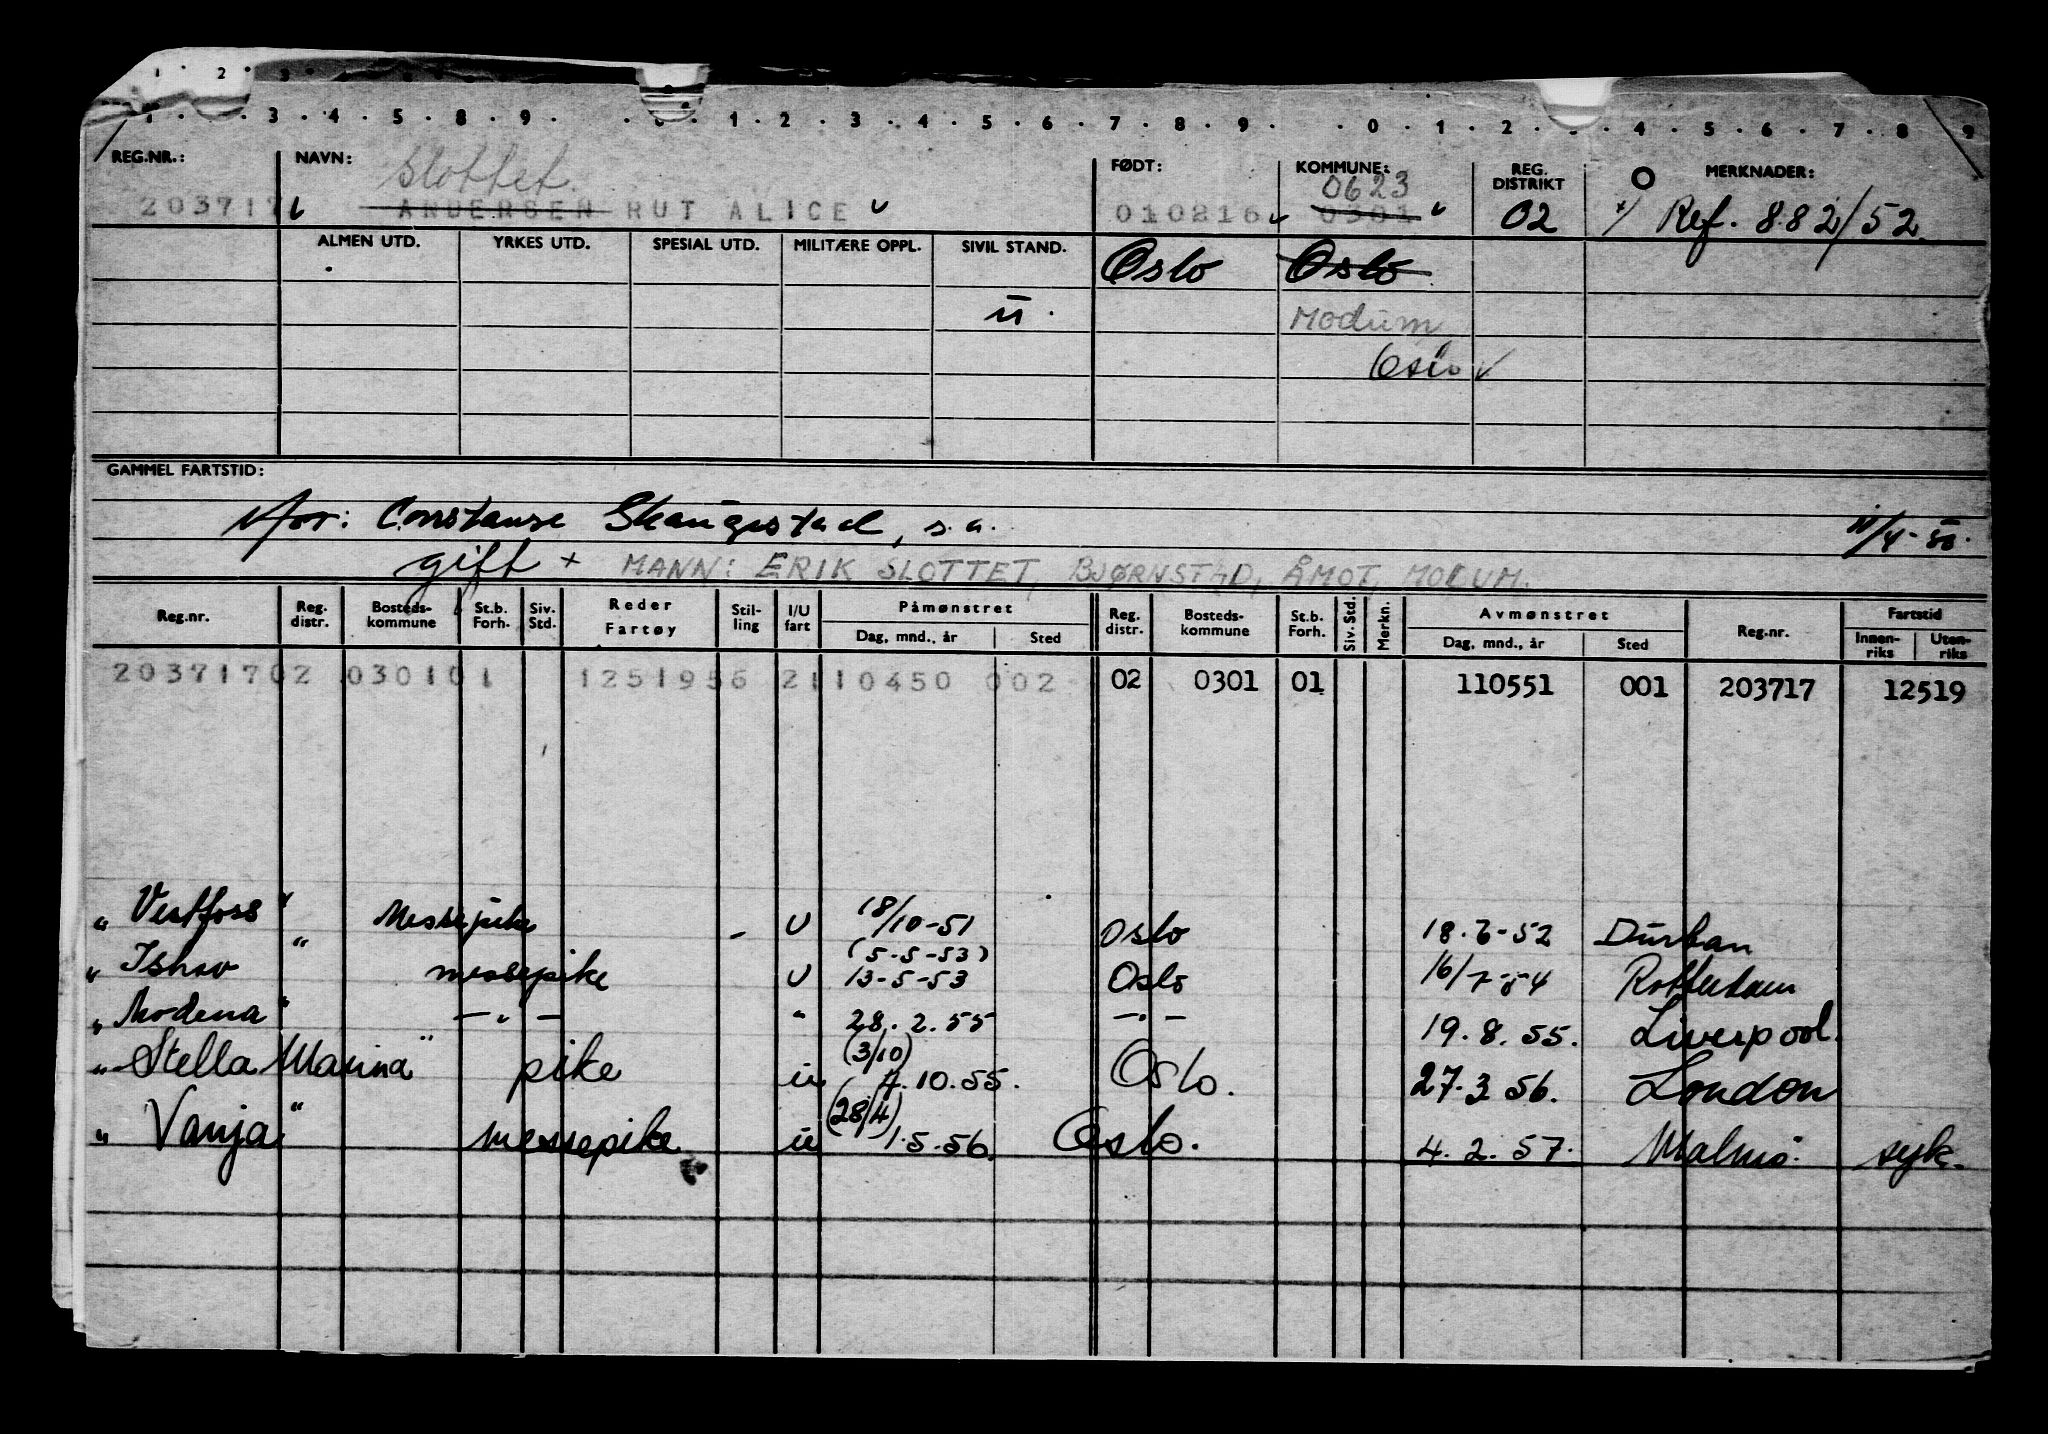 1 . 2 . 3
1 . . 3 . 4 . 5 . 8 . 9 . . 0 . 1 . 2 . 3 . 4 . 5 . 6 . 7 . 8 . 9 . . 0 . 1 . 2 . 3 . 4 . 5 . 6 . 7 . 8 . 9
REG.NR.: NAVN: Slottet FØDT: KOMMUNE: REG. DISTRIKT MERKNADER:
0623
203717 ANDERSEN RUT ALICE 010216 0301 02 x/ Ref. 882/52
ALMEN UTD. YRKES UTD. SPESIAL UTD. MILITÆRE OPPL. SIVIL STAND. Oslo Oslo
u Modum
Oslo
GAMMEL FARTSTID:
Mor: Constanse Skaugstad, s.a. 11/4-50.
gift + MANN: ERIK SLOTTET, BJØRNSTAD, ÅMOT, MODUM.
Reg.nr. Reg. distr. Bosteds-kommune St.b. Forh. Siv. Std. Reder Fartøy Stil-ling I/U fart Påmønstret Reg. distr. Bosteds-kommune St.b. Forh. Siv. Std. Merkn. Avmønstret Reg.nr. Fartstid
Dag, mnd., år Sted Dag, mnd., år Sted Innen-riks Uten-riks
20371702 030101 1251956 2110450 002 02 0301 01 110551 001 203717 12519
"Vestfoss" Messepike - U 18/10-51 Oslo 18.6-52 Durban
(5-5-53)
" " messepike U 13-5-53 Oslo 16/7-54 Rotterdam
"Modena" -"- " 28.2.55 -"- 19.8.55. Liverpool.
(3/10)
"Stella Marina" pike u 4.10.55. Oslo. 27.3 56. London
(28/4)
"Vanja" messepike u 1.5.56. Oslo. 4.2.57. Malmö. syk.